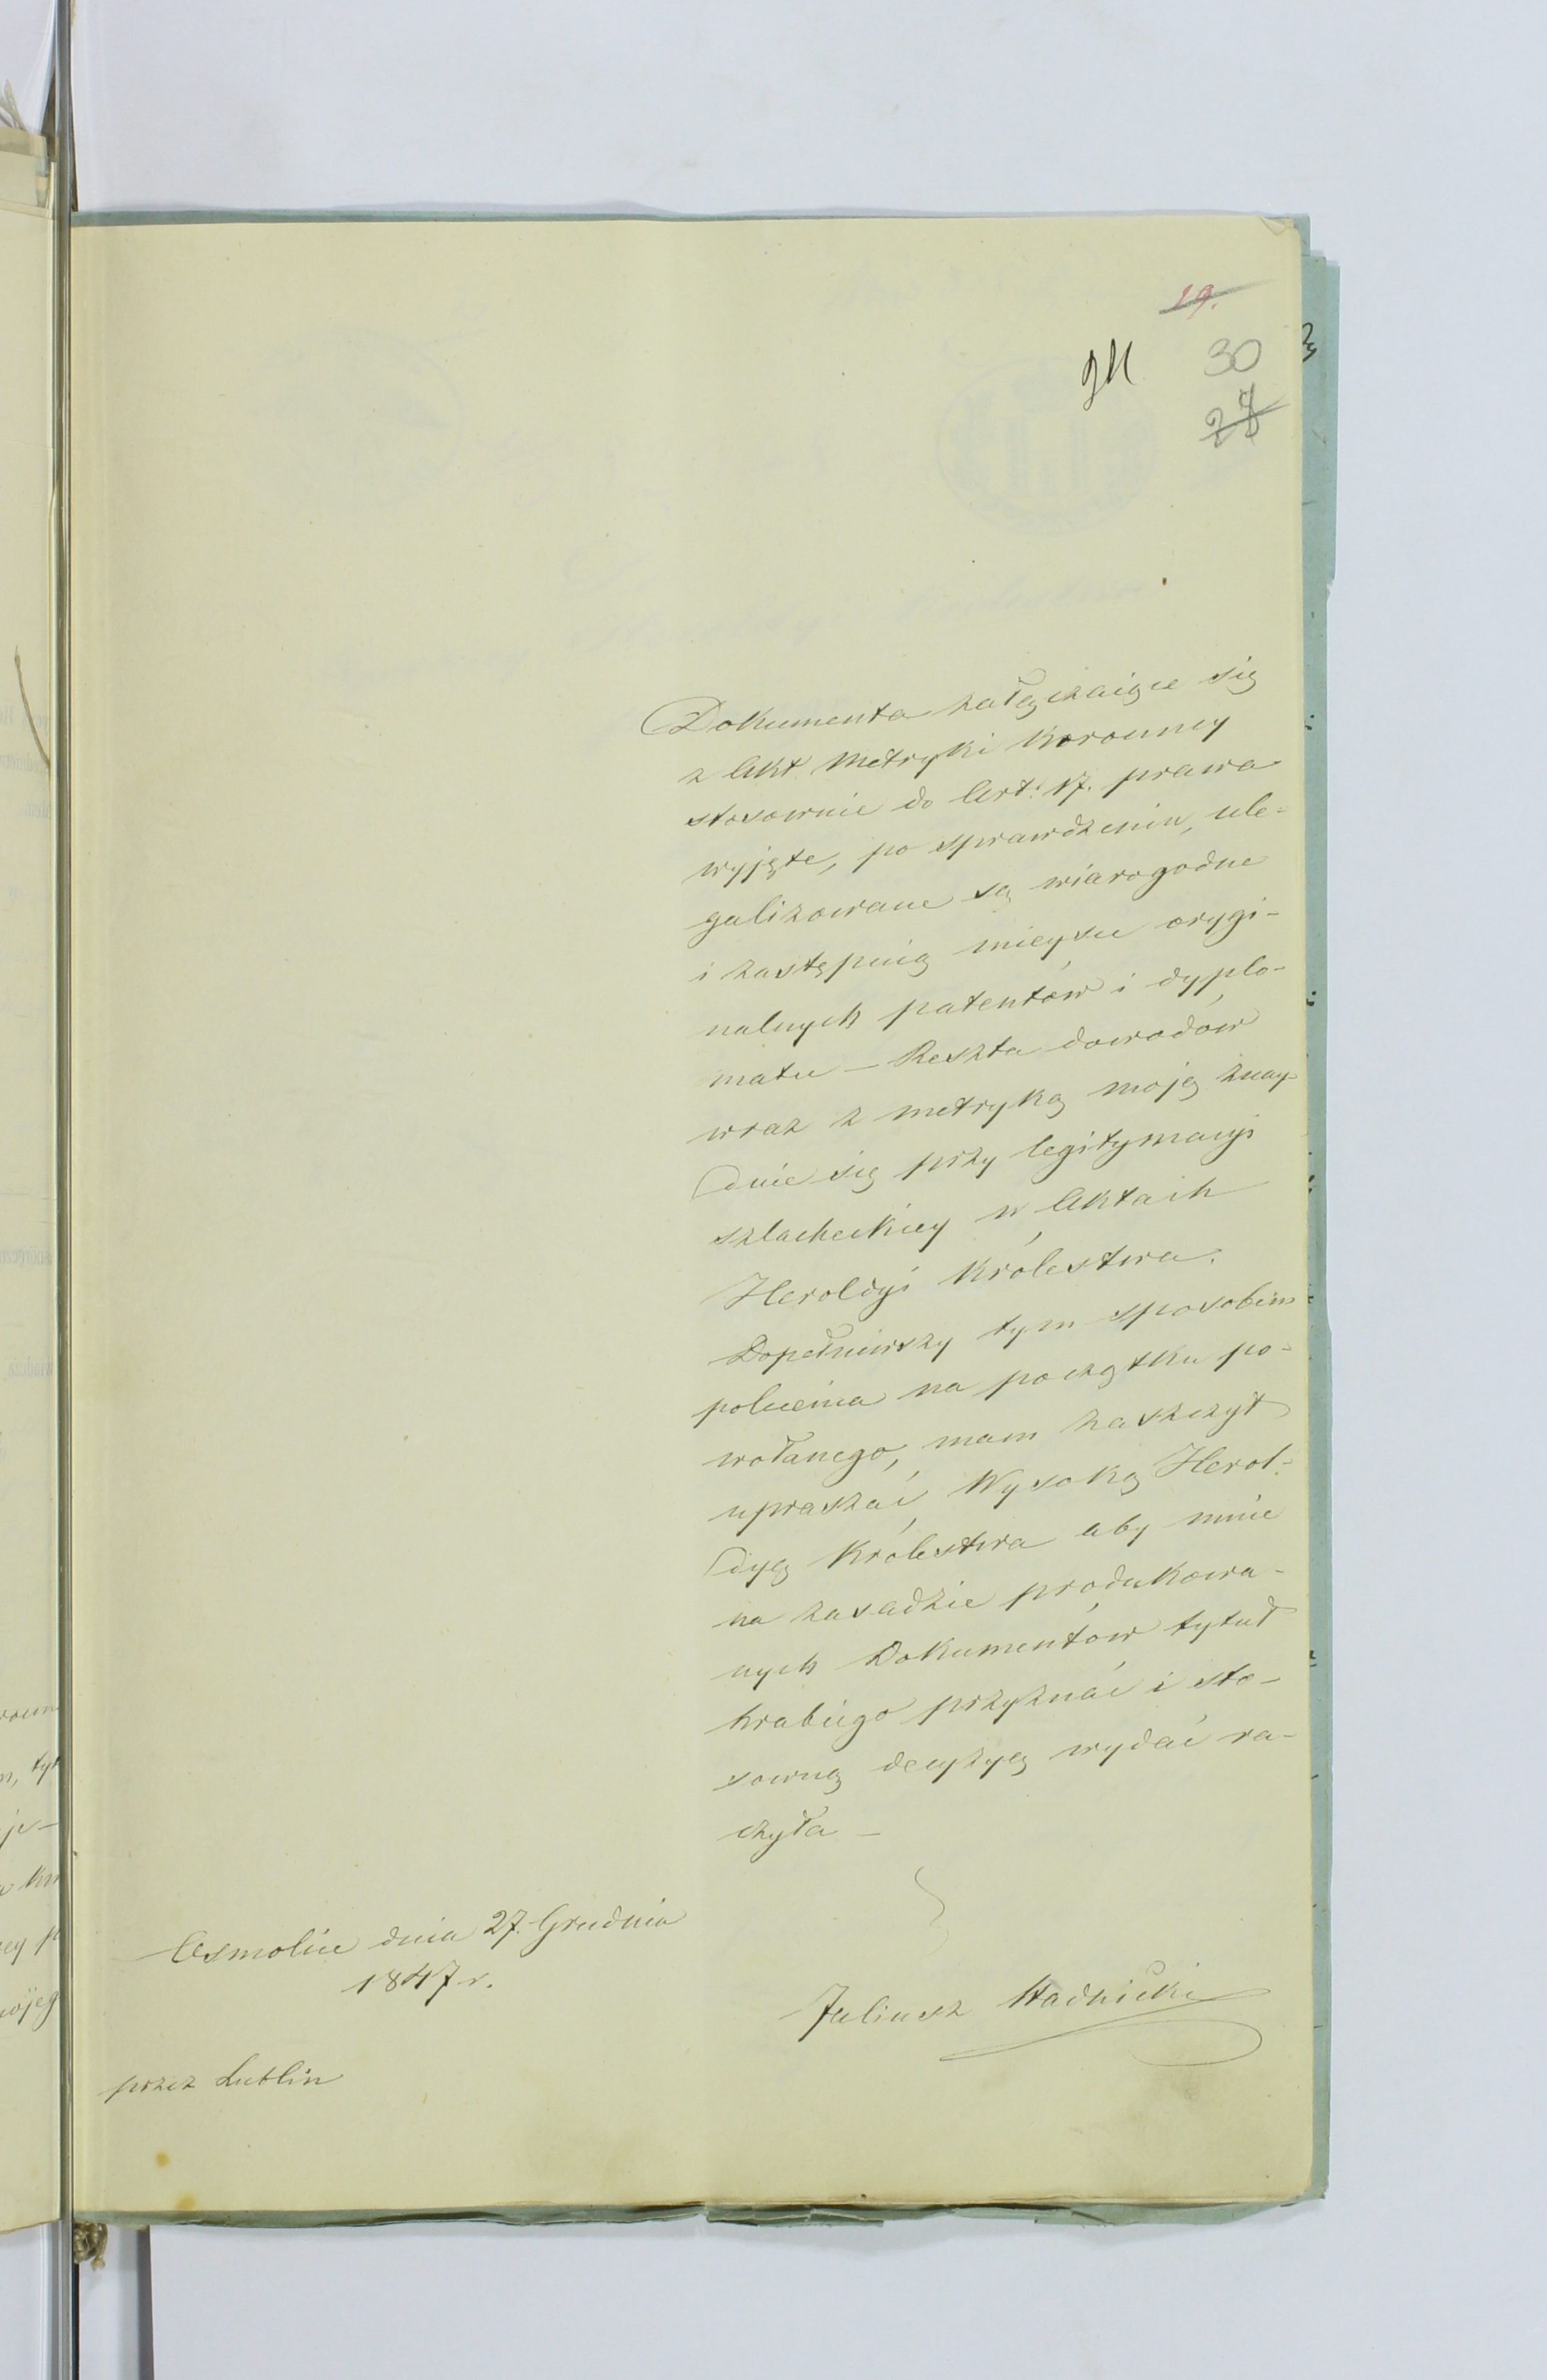 29.
30
Dokumenta załączaiące się
z Akt Metryki Koronney
stosownie do Art: 17. prawa
wyjęte, po sprawdzeniu, ule-
galizowane są wiarogodne
i zastępuią mieysce orygi-
nalnych patentów i dyplo-
matu — Reszta dowodów
wraz z metryką moją znay-
dnie się przy legitymacyi
szlacheckiey w Aktach
Heroldyi Królestwa.
Dopełniwszy tym sposobem
polecenia na początku po-
wołanego, mam zaszczyt
upraszać Wysoką Herol-
dyę Królestwa aby mnie
na zasadzie produkowa-
nych Dokumentów tytuł
hrabiego przyznać i sto-
sowną decyzyę wydać ra-
czyła —
Osmolice dnia 27. Grudnia
1847 r.
Juliusz Stadnicki
przez Lublin